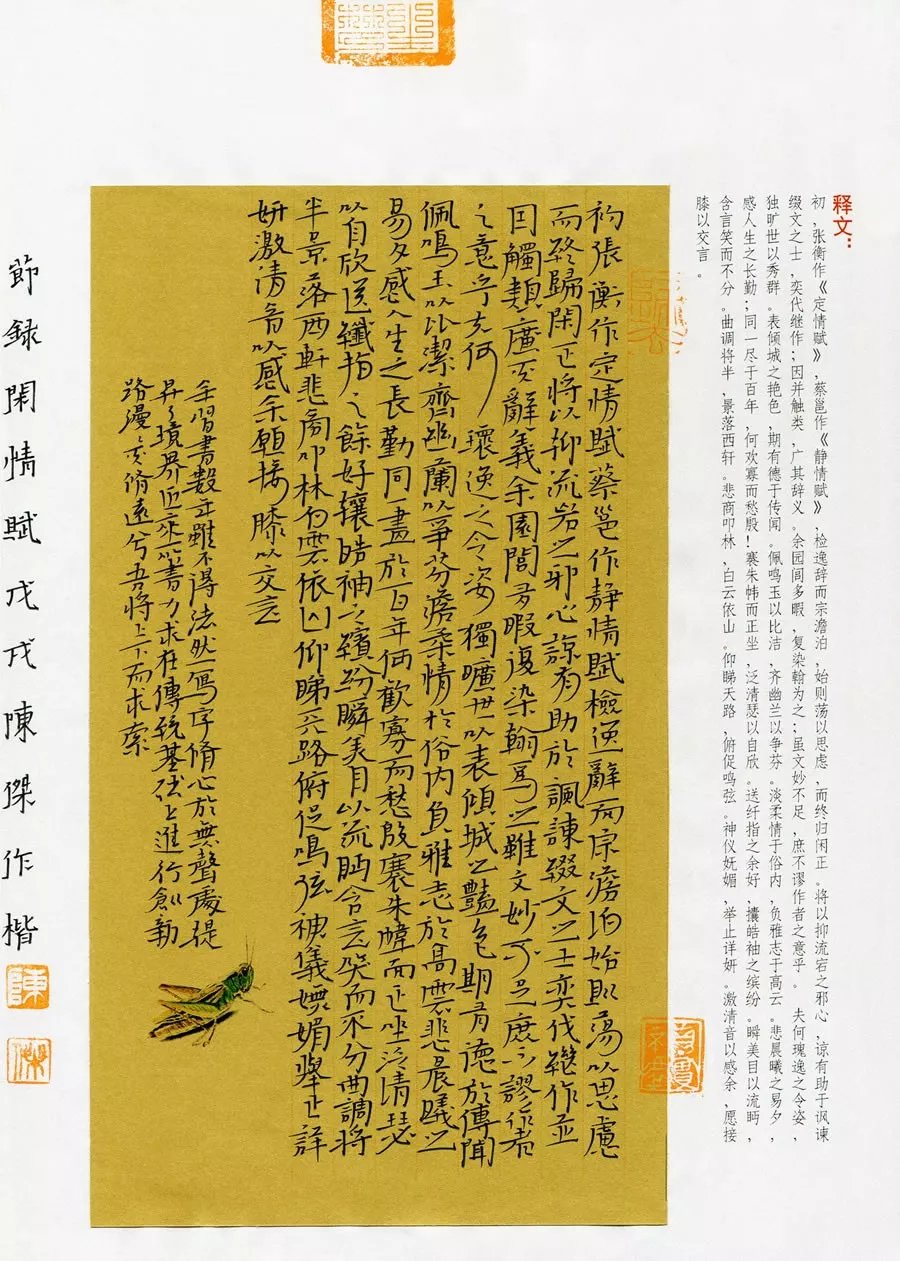 释文：
初，张衡作《定情赋》，蔡邕作《静情赋》，检逸辞而宗澹泊，始则荡以思虑，而终归闲正。将以抑流宕之邪心，谅有助于讽谏
缀文之士，奕代继作；因并触类，广其辞义。余园闾多暇，复染翰为之；虽文妙不足，庶不谬作者之意乎。 夫何瑰逸之令姿，
独旷世以秀群。表倾城之艳色，期有德于传闻。佩鸣玉以比洁，齐幽兰以争芬。淡柔情于俗内，负雅志于高云。悲晨曦之易夕，
感人生之长勤；同一尽于百年，何欢寡而愁殷！褰朱帏而正坐，泛清瑟以自欣。送纤指之余好，攘皓袖之缤纷。瞬美目以流眄，
含言笑而不分。曲调将半，景落西轩。悲商叩林，白云依山。仰睇天路，俯促鸣弦。神仪妩媚，举止详妍。激清音以感余，愿接
膝以交言。
初張衡作定情賦蔡邕作静情賦檢逸辭而宗澹泊始則蕩以思慮
而終歸閑正将以抑流宕之邪心諒有助於諷諫綴文之士奕代繼作並
因觸類廣其辭義余園閭多暇復染翰為之雖文妙不足庶不謬作者
之意乎夫何瓌逸之令姿獨曠世以表傾城之豔色期有德於傳聞
佩鳴玉以比潔齊幽蘭以爭芬澹柔情於俗内負雅志於高雲悲晨曦之
易夕感人生之長勤同一盡於百年何歡寡而愁殷褰朱幃而正坐泛清瑟
以自欣送纖指之餘好攘皓袖之繽紛瞬美目以流眄含言笑而不分曲調将
半景落西軒悲商叩林白雲依山仰睇天路俯促鳴弦神儀嫵媚舉止詳
妍激清音以感余願接膝以交言
余習書數年雖不得法然一寫字脩心於無聲處提
昇之境界近來以書力求在傳統基礎上進行創新
路漫漫其脩遠兮吾将上下而求索
節録閑情賦戊戌陳傑作楷
陳
傑